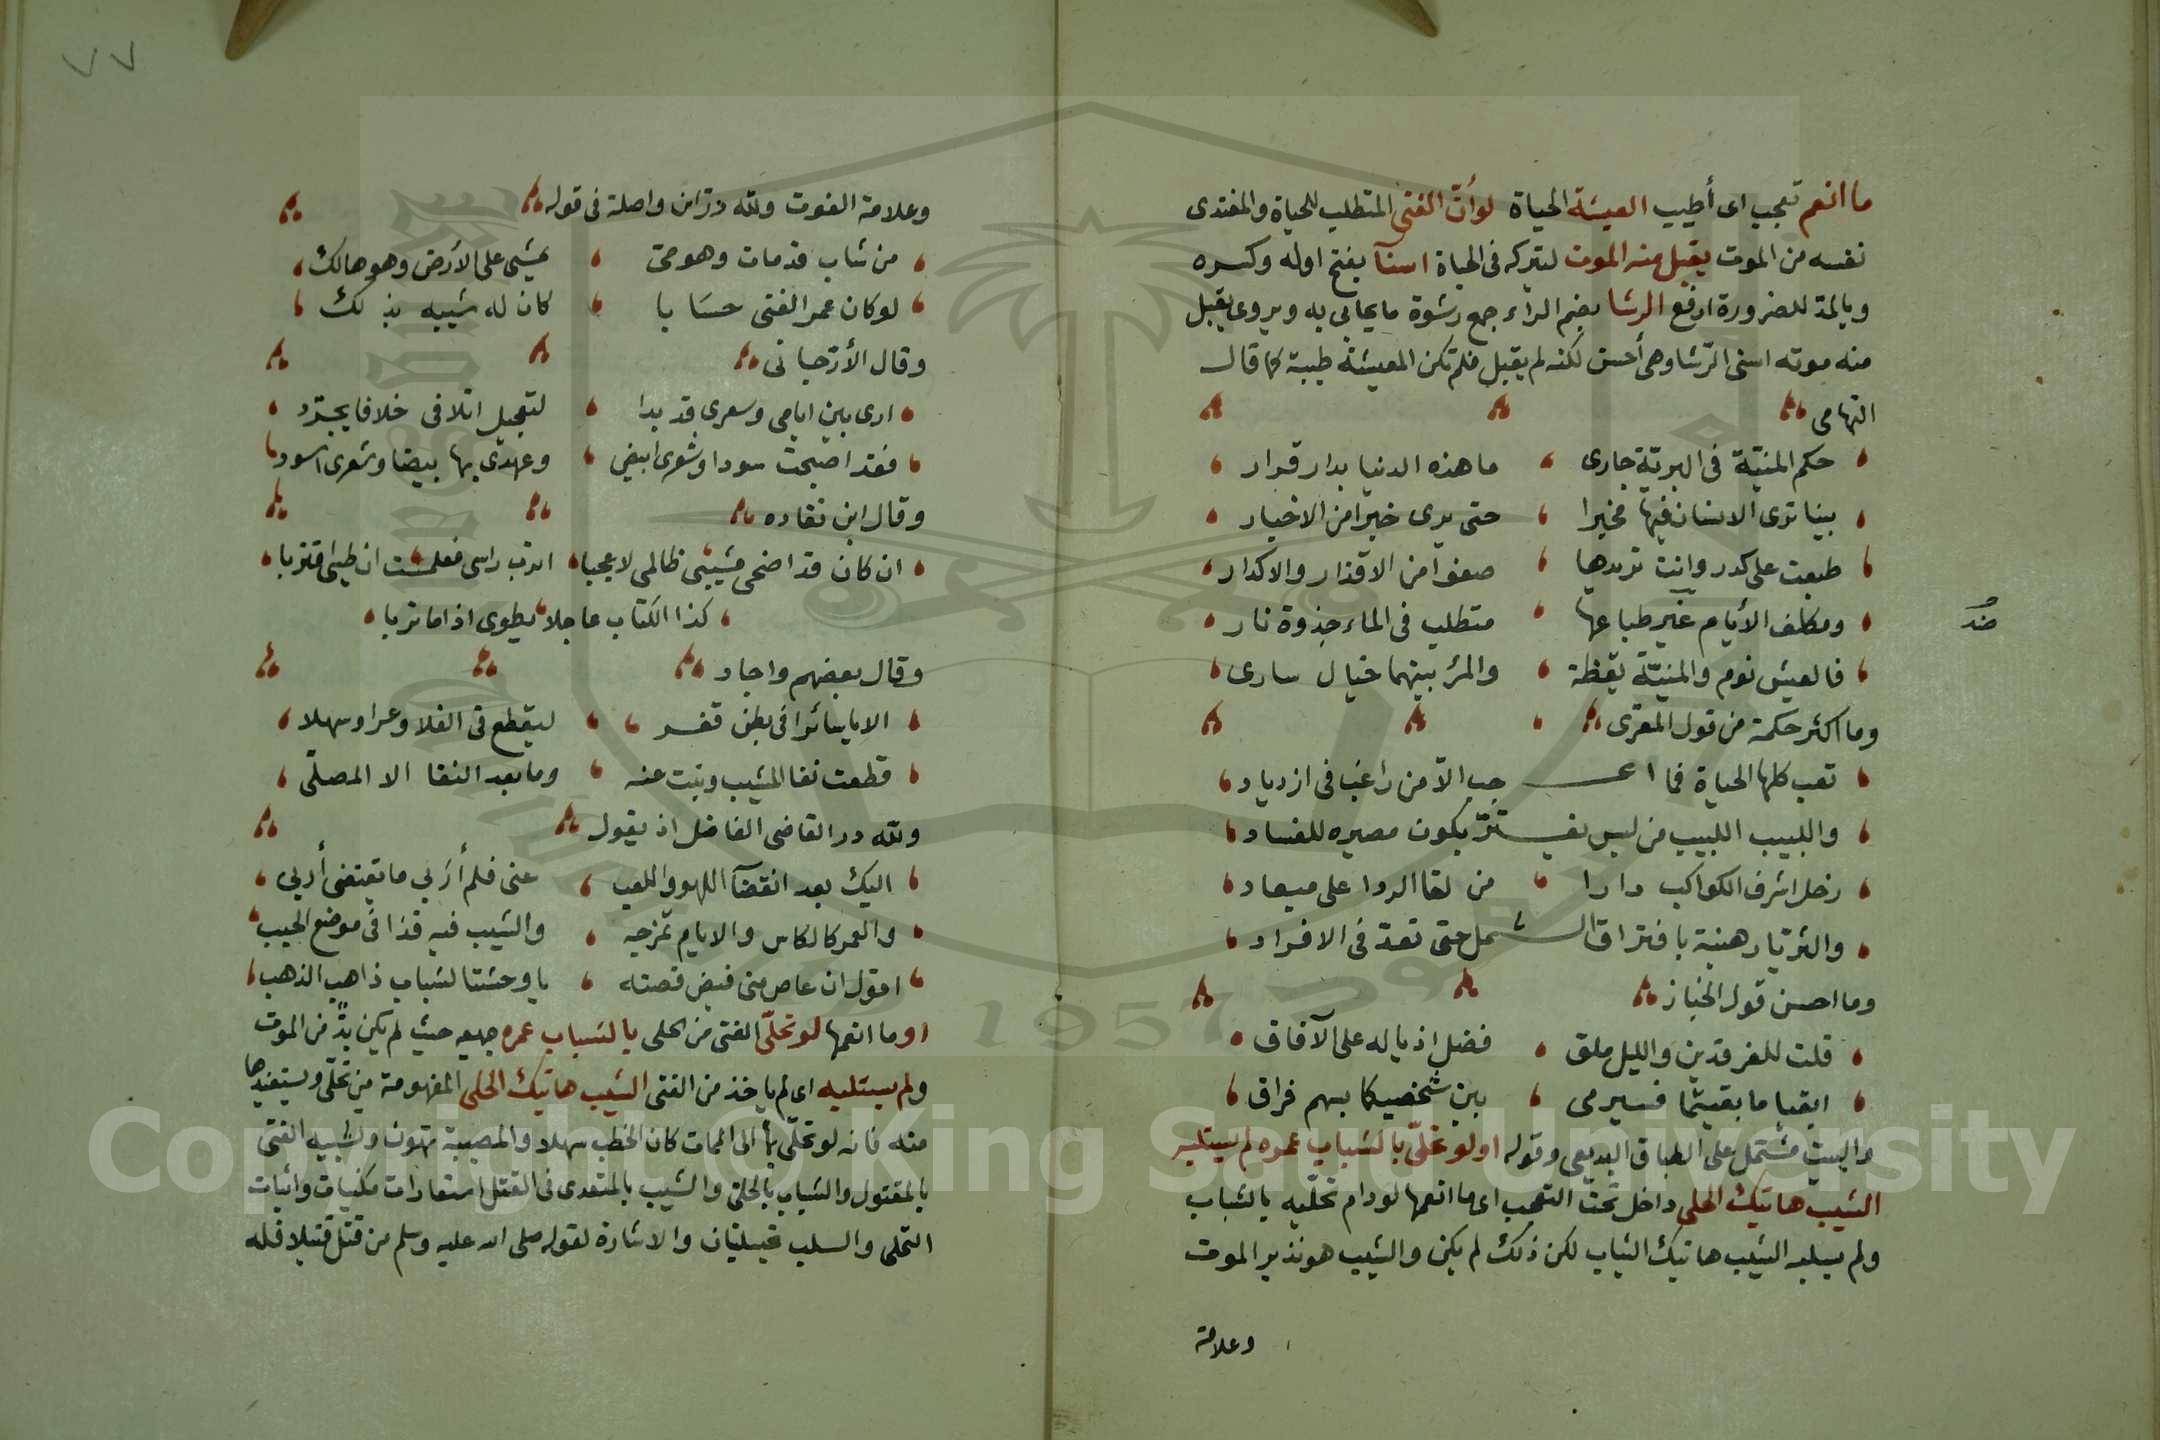 ما انعم تعجب اى أطيب العيشة الحياة لو أن الفتى المتطلب للحياة والمفتدى
نفسه من الموت يقبل منه الموت ليتركه فى الحياة اسنآ بفتح اوله وكسره
وبالمد للضرورة ارفع الرشا بضم الراء جمع رشوة ما يحابى به ويروى يقبل
منه موته اسنى الرشا وهى أحسن لكنه لم يقبل فلم تكن المعيشة طيبة كما قال
التهامى
حكم المنيّة فى البريّة جارى ما هذه الدنيا بدار قرار
بينا ترى الانسان فيها مخبرا حتى يرى خبرا من الاخبار
طبعت على كدر وانت تريدها صفوا من الاقذار والاكدار
ومكلف الأيام غير طباعها متطلب فى الماء جذوة نار
ضد
فالعيش نوم والمنيّة يقظة والمرء بينهما خيال سارى
وما اكثر حكمة من قول المعرّى
تعب كلها الحياة فما اعجب الاّ من راغب فى ازدياد
واللبيب اللبيب من ليس يغترّ بكون مصيره للفساد
زحل اشرف الكواكب دارا من لقا الردا على ميعاد
والثريّا رهينة بافتراق الشمل حتى تعدّ فى الافراد
وما احسن قول الخباز
قلت للفرقدين والليل ملق فضل اذياله على الآفاق
ابقيا ما بقيتما فسيرمى بين شخصيكما بسهم فراق
والبيت مشتمل على الطباق البديعى وقوله او لو تحلّى بالشباب عمره لم يستلبه
الشيب هاتيك الحلى داخل تحت التعجب اى ما انعمها لو دام تحلّيه بالشباب
ولم يسلبه الشيب هاتيك الثياب لكن ذلك لم يكن والشيب هو نذير الموت
وعلامة
٧٧
وعلامة الفوت ولله درّ ابن واصلة فى قوله
من شاب قد مات وهو حى يمشى على الأرض وهو هالك
لو كان عمر الفتى حسابا كان له شيبه بذلك
وقال الأرّجانى
ارى بين ايامى وشعرى قد بدا لتعجيل اتلافى خلافا يجدّد
فقد اصبحت سودا وشعرى ابيض وعهدى بها بيضا وشعرى اسود
وقال ابن نقاده
ان كان قد اضحى مشيبى ظالمى لا عجبا اترب راسى فعلمت ان طيى اقتربا
كذا الكتاب عاجلا يطوى اذا ما تربا
وقال بعضهم واجاد
الا يا سائرا فى بطن قفر ليقطع فى الفلا وعرا وسهلا
قطعت نقا المشيب وبنت عنه وما بعد النقا الا المصلّى
ولله در القاضى الفاضل اذ يقول
اليك بعد انقضآ اللهو واللعب عنى فلم أرَ بي ما يقتضى أربي
والعمر كالكاس والايام تمزجه والشيب فيه قذا فى موضع الحبب
اقول ان غاص منى فيض فضته يا وحشتا لشباب ذاهب الذهب
او ما انعمها لو تحلّى الفتى من الحلى بالشباب عمره جميعه حيث لم يكن بدّ من الموت
ولم يستلبه اى لم ياخذ من الفتى الشيب هاتيك الحلى المفهومة من تحلّى ويستفيدها
منه فانه لو تحلّى بها الى الممات كان الخطب سهلا والمصيبة تهون وتشبيه الفتى
بالمقتول والشباب بالحلى والشيب بالمتعدى فى القتل استعارات مكنيات واثبات
التحلى والسلب تخييليان والاشارة لقوله صلى الله عليه وسلم من قتل قتيلا فله
Copyright © King Saud University
1957